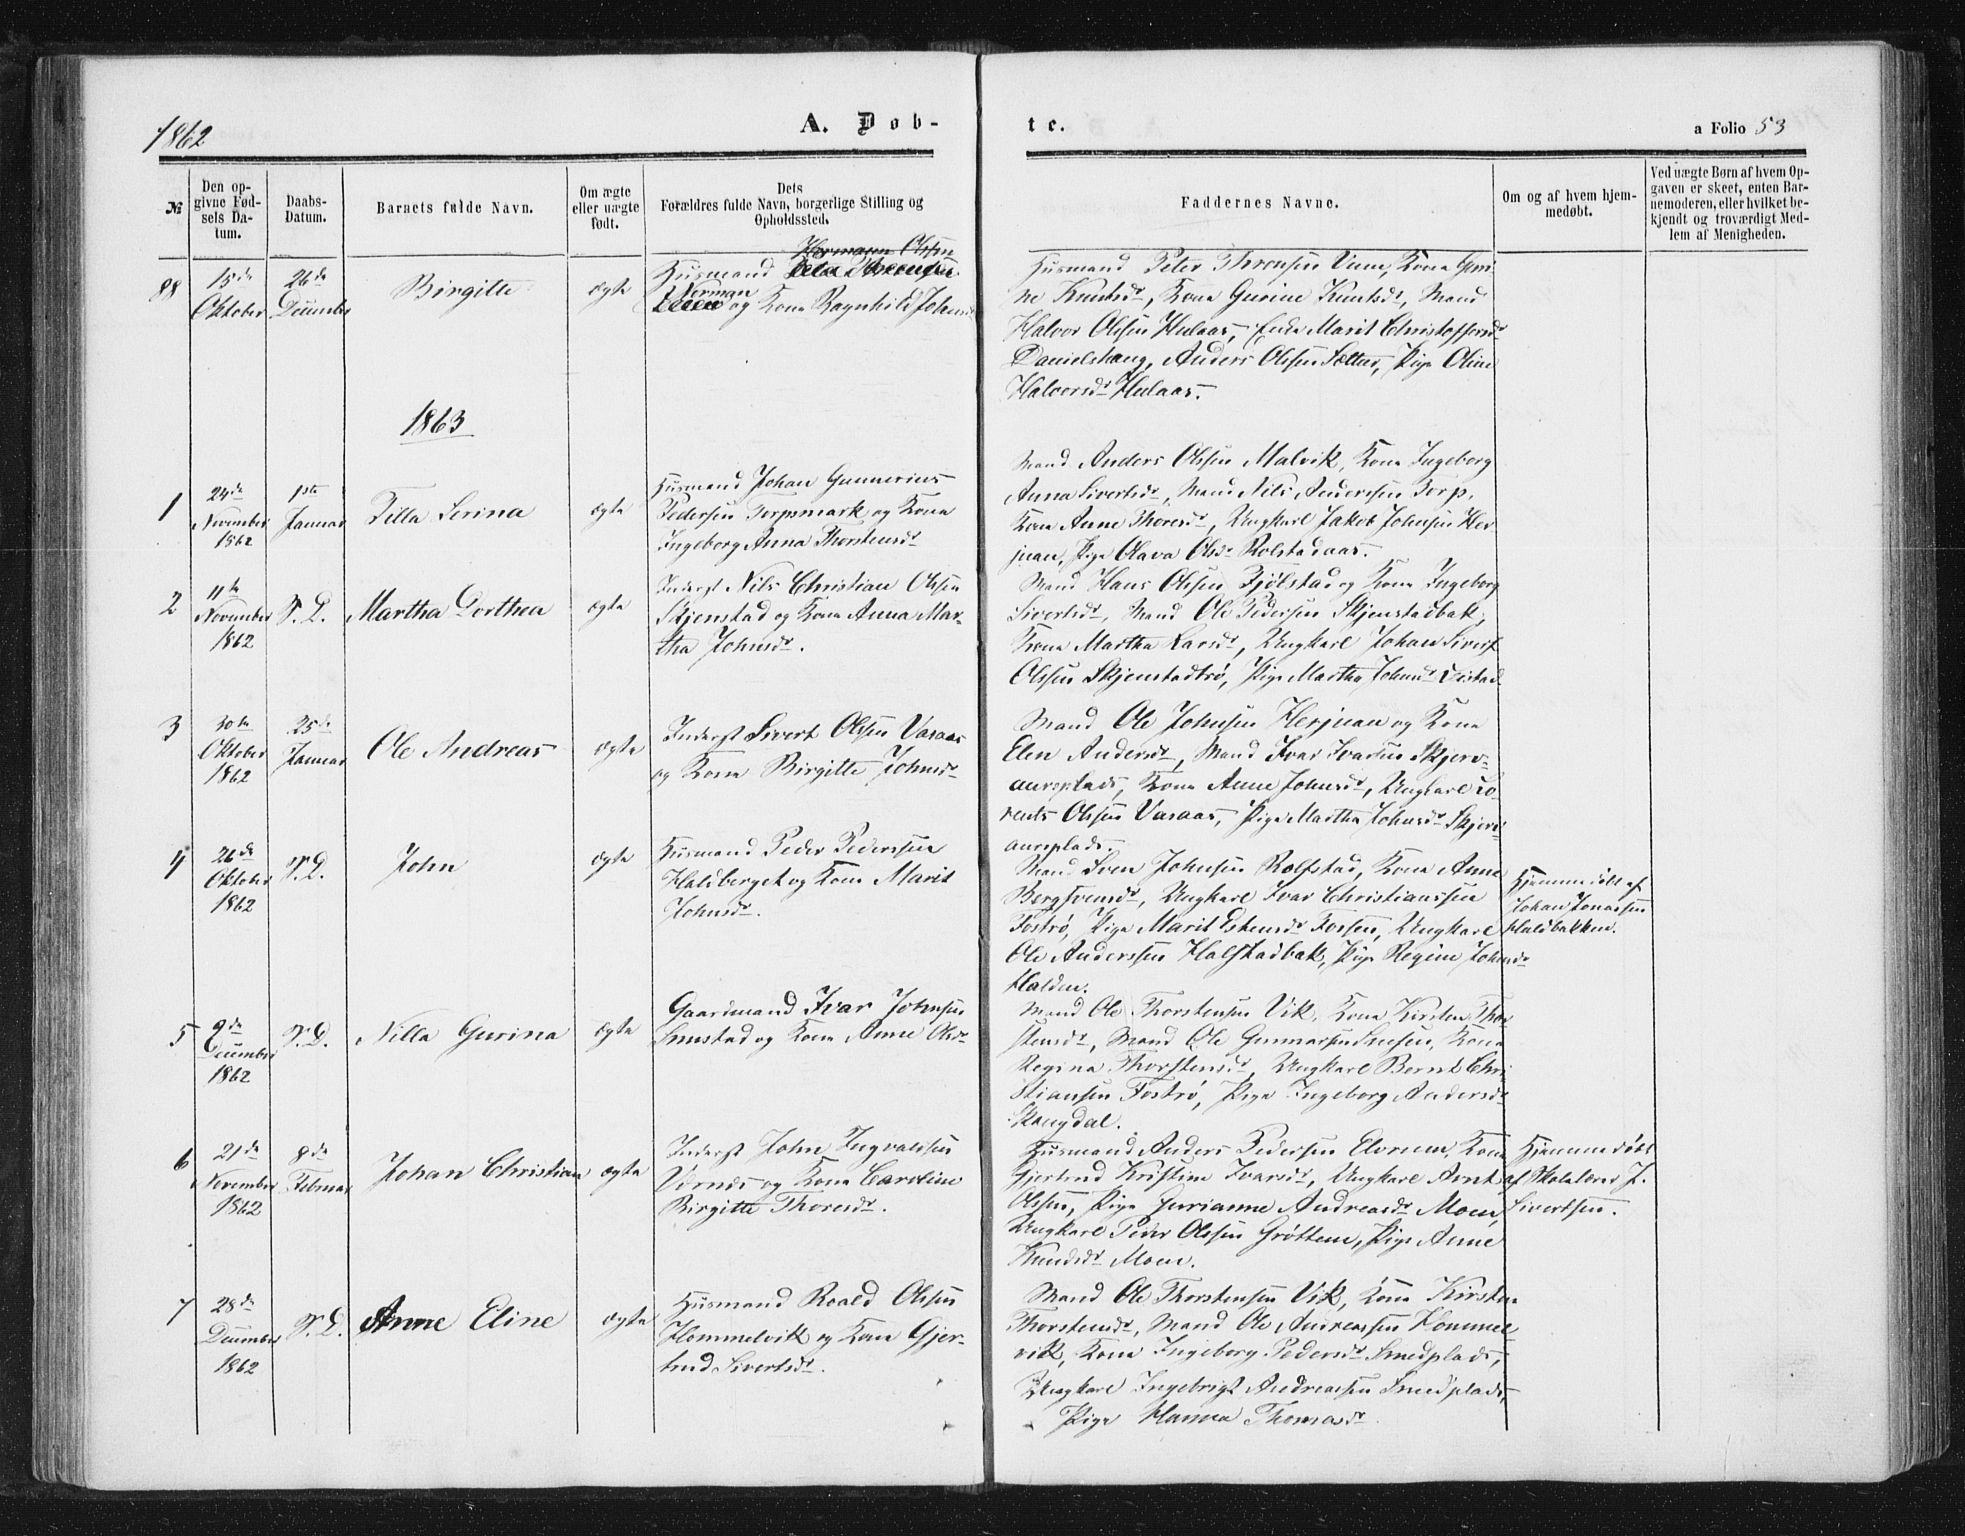 1862
A. Døb-
te.
a Folio 53
№
Den op-
givne Fød-
sels Da-
tum.
Daabs-
Datum.
Barnets fulde Navn.
Om ægte
eller uægte
født.
Dets
Forældres fulde Navn, borgerlige Stilling og
Opholdssted.
Faddernes Navne.
Om og af hvem hjem-
medøbt.
Ved uægte Børn af hvem Op-
gaven er skeet, enten Bar-
nemoderen, eller hvilket be-
kjendt og troværdigt Med-
lem af Menigheden.
88
15de
Oktober
26de
December
Birgitte
ægte
Hermann Olsen
Husmand
og Kone Ragnhild Johnsdr
Husmand Peter Thronsen Vuen, Kone
Knutsdr, Kone Gurine Knutsdr, Mand
Halvor Olsen Hulaas, Enke Marit Christoffersdr
Danielshaug, Anders Olsen Sætter, Pige Oline
Halvorsdr Hulaas.
1863
1
24de
November
1862
1ste
Januar
Tilla Serina
ægte
Husmand Johan Gunnerius
Pedersen Torpsmark og Kone
Ingeborg Anna Thorstensdr
Mand Anders Olsen Malvik, Kone Ingeborg
Anna Sivertsdr, Mand Nils Andersen Torp,
Kone Anne Thoresdr, Ungkarl Jakob Johnsen Her
juan, Pige Olava Olsdr Rolstadaas.
2
11te
November
1862
S. D.
Martha Dorthea
ægte
Inderst Nils Christian Olsen
Skjenstad og Kone Anna Mar-
tha Johnsdr.
Mand Hans Olsen Fjølstad og Kone Ingeborg
Sivertsdr, Mand Ole Pedersen Skjenstadbak,
Kone Martha Larsdr, Ungkarl Johan Sivert
Olsen Skjenstadtrø, Pige Martha Johnsdr Vistad
3
30te
Oktober
1862
25de
Januar
Ole Andreas
ægte
Inderst Sivert Olsen Vasaas
og Kone Birgitte Johnsdr
Mand Ole Johnsen Herjuan og Kone
Elen Andersdr, Mand Ivar Ivarsen Skjerv-
aureplads, Kone Anne Johnsdr, Ungkarl Lo-
rents Olsen Vasaas, Pige Martha Johnsdr Skjerv
aureplads.
4
26de
Oktober
1862
S. D.
John
ægte
Husmand Peder Pedersen
Haldberget og Kone Marit
Johnsdr.
Mand Sven Johnsen Rolfstad, Kone Anne
Bergsvensdr, Ungkarl Ivar Christianssen
Fostrø, Pige Marit Estensdr Forsen, Ungkarl
Ole Anderssen Halstadbak, Pige Regine Johnsdr
Halden.
Hjemmedøbt af
Johan Jonassen
Haldbakken.
5
9de
December
1862
S. D.
Nilla Gurina
ægte
Gaardmand Ivar Johnsen
Smistad og Kone Anne Olsdr
Mand Ole Thorstensen Vik, Kone Kirsten Thor
stensdr, Mand Ole Gunnarsen, Kone
Regina Thorstensdr, Ungkarl Bernt Chri
stiansen Fostrø, Pige Ingeborg Andersdr
Staugdal.
6
21de
November
1862
8de
Februar
Johan Christian
ægte
Inderst John Ingvaldsen
Vernes og Kone Caroline
Birgitte Thoresdr.
Husmand Anders Pedersen Elvrum, Kone
Gjertrud Kristine Ivarsdr, Ungkarl Arnt
Olsen, Pige Gurianne Andreasdr Moen,
Ungkarl Peder Olsen Grøttem, Pige Anne
Knudsdr Moen.
Hjemmedøbt
af Skolelærer J.
Sivertsen.
7
28de
December
1862
S. D.
Anne Eline
ægte
Husmand Roald Olsen
Hommelvik og Kone Gjer-
trud Sivertsdr.
Mand Ole Thorstensen Vik, Kone Kirsten
Thorstensdr, Mand Ole Andreassen Hommel
vik, Kone Ingeborg Pedersdr Smedplads,
Ungkarl Ingebrigt Andreassen Smedplads,
Pige Hanna Thomasdr